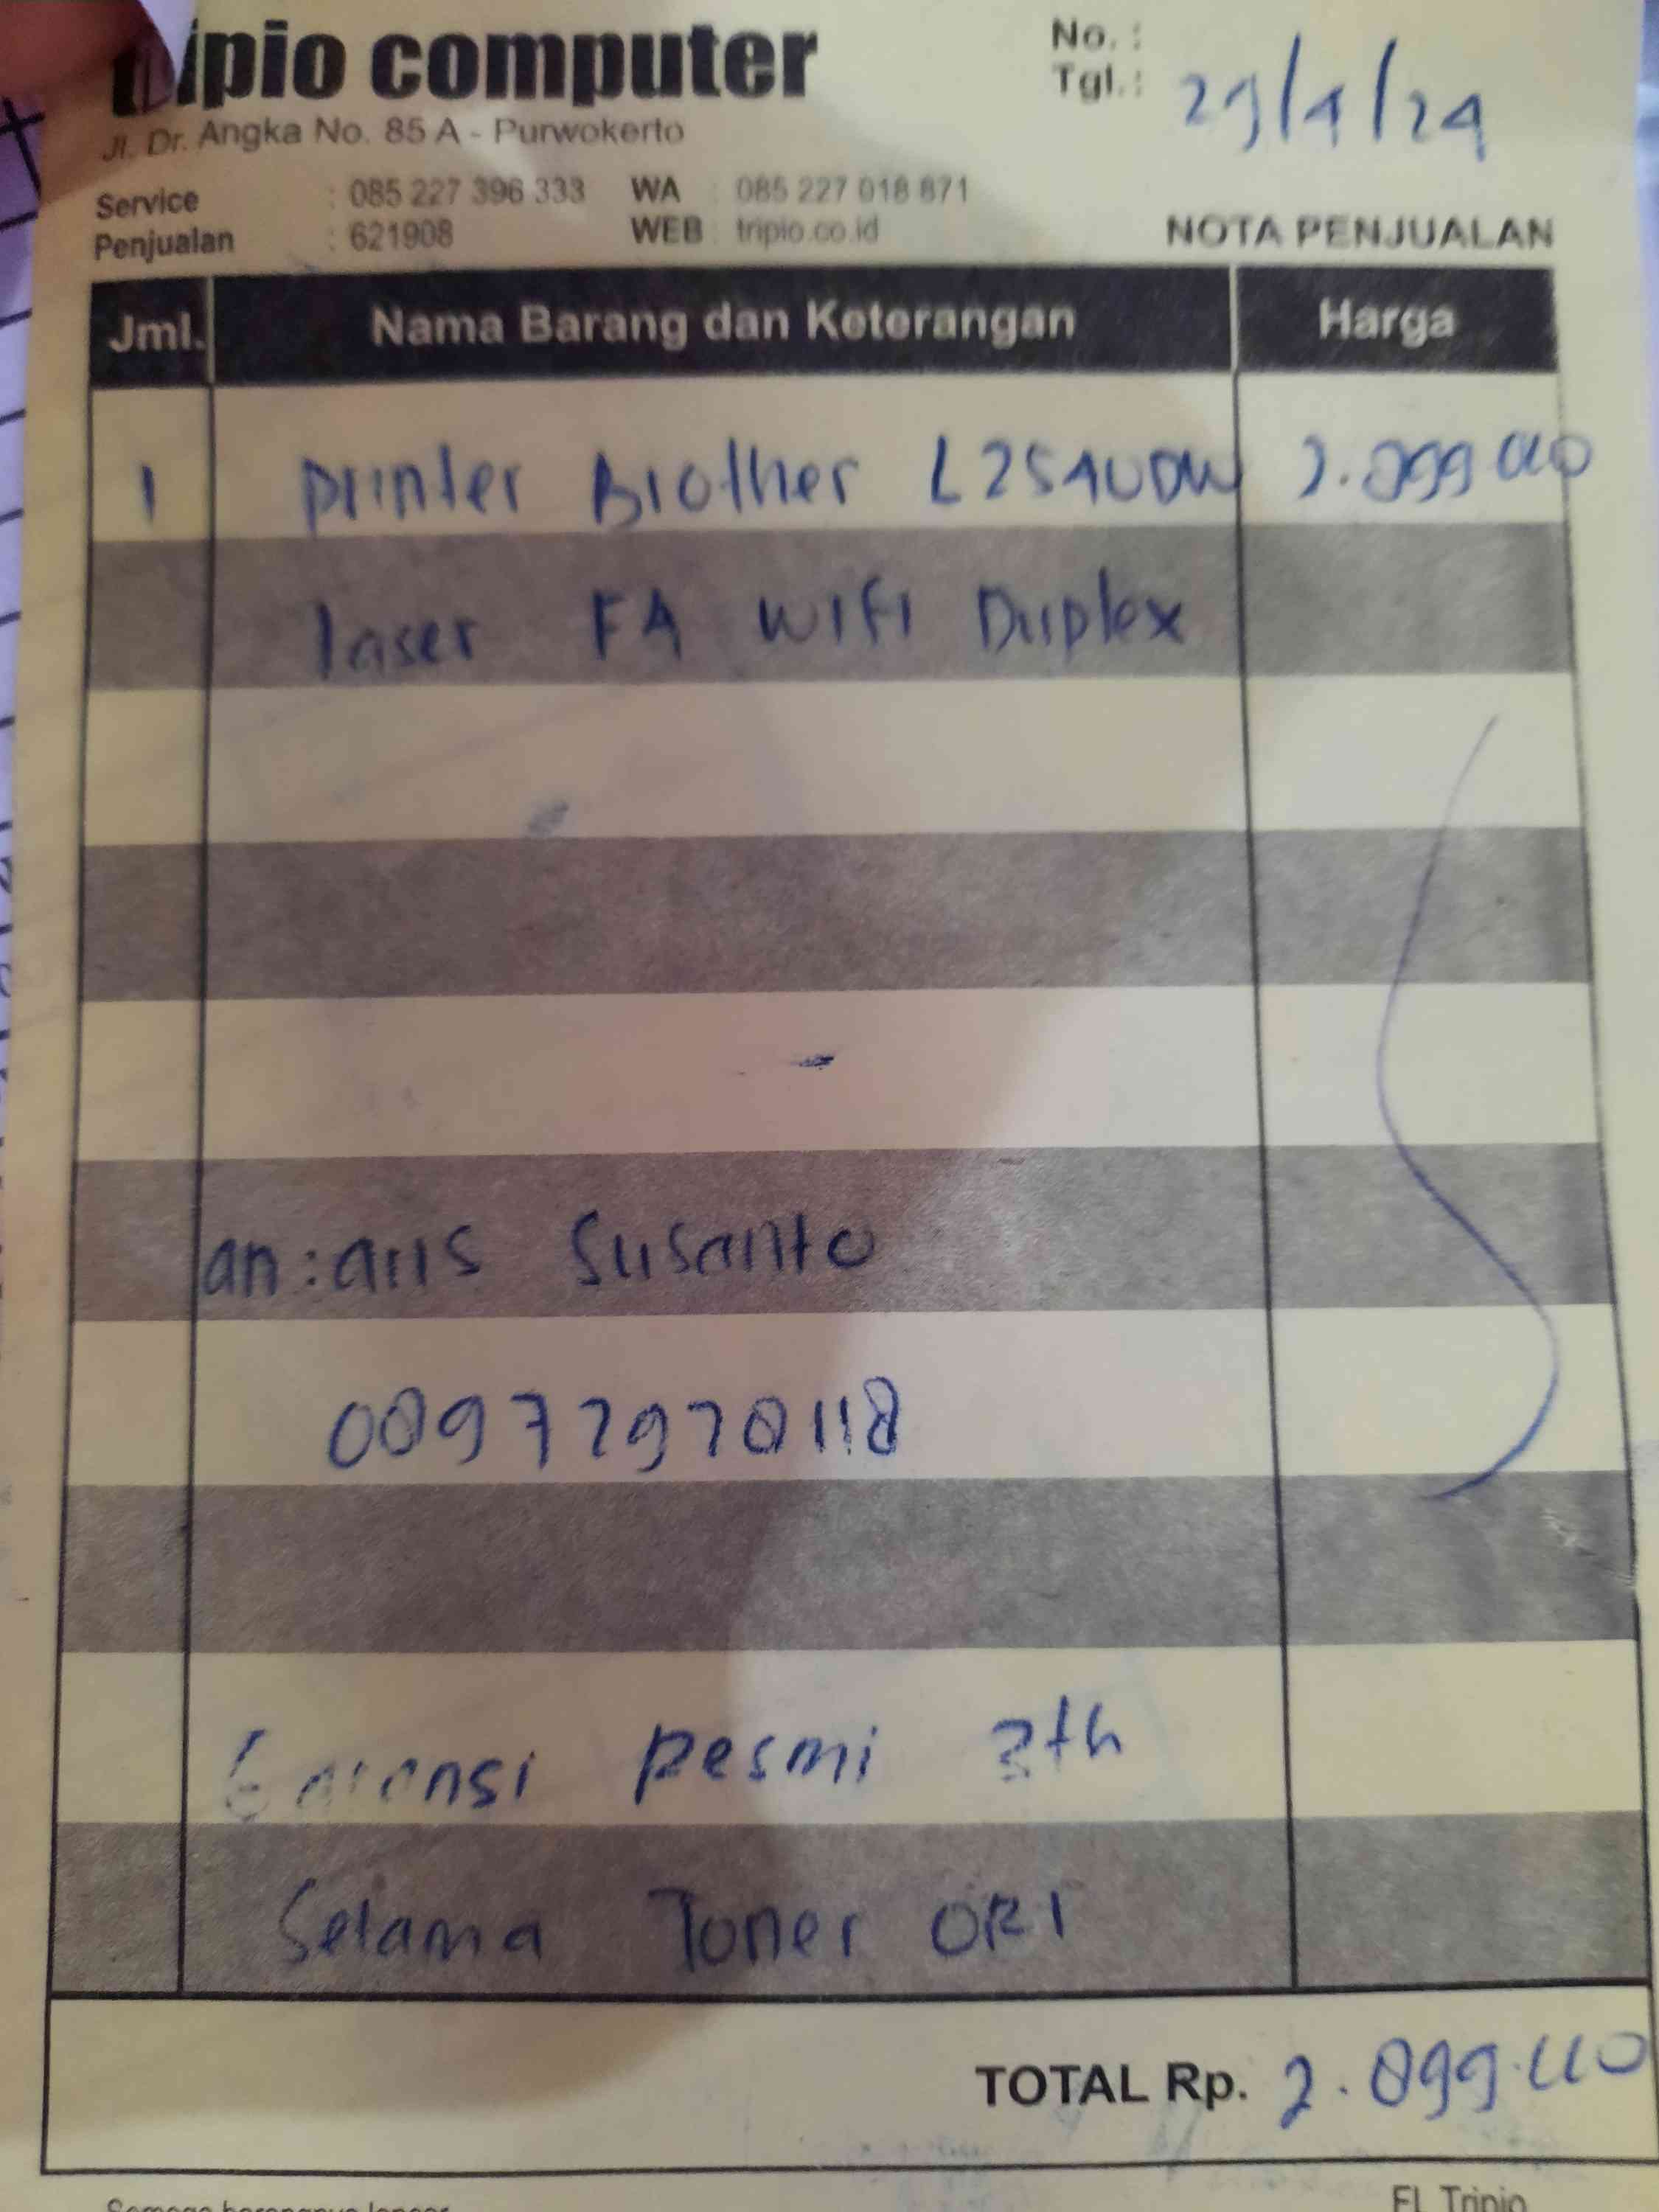 tripio computer
Jl. Dr. Angka No. 85 A - Purwokerto
No. :
Tgl. : 29/4/24
Service : 085 227 396 333 WA : 085 227 018 871
Penjualan : 621908 WEB : tripio.co.id
NOTA PENJUALAN
Jml. Nama Barang dan Keterangan Harga
1 printer Brother L2540DW 2.899.000
laser F4 wifi Duplex
an : aris Susanto
Garansi Resmi 3th
Selama Toner ORI
TOTAL Rp. 2.899.000